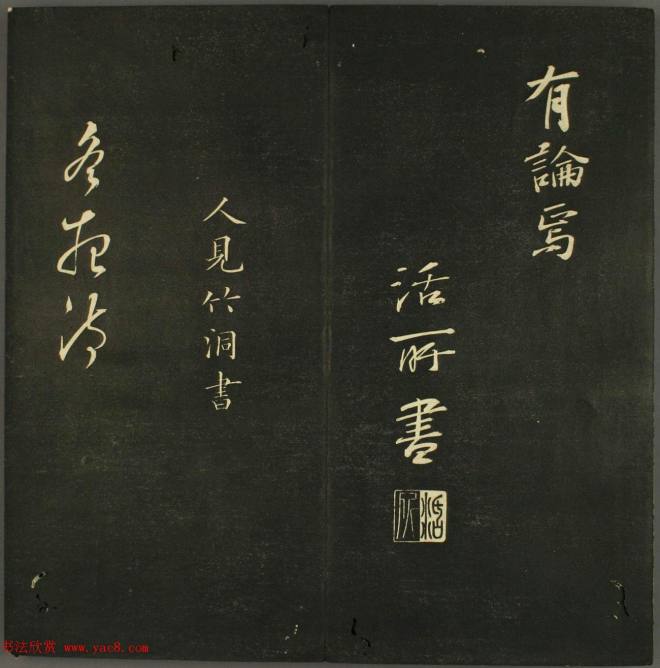 有論焉
活所書
活所
人見竹洞書
书法欣赏 www.yac8.com